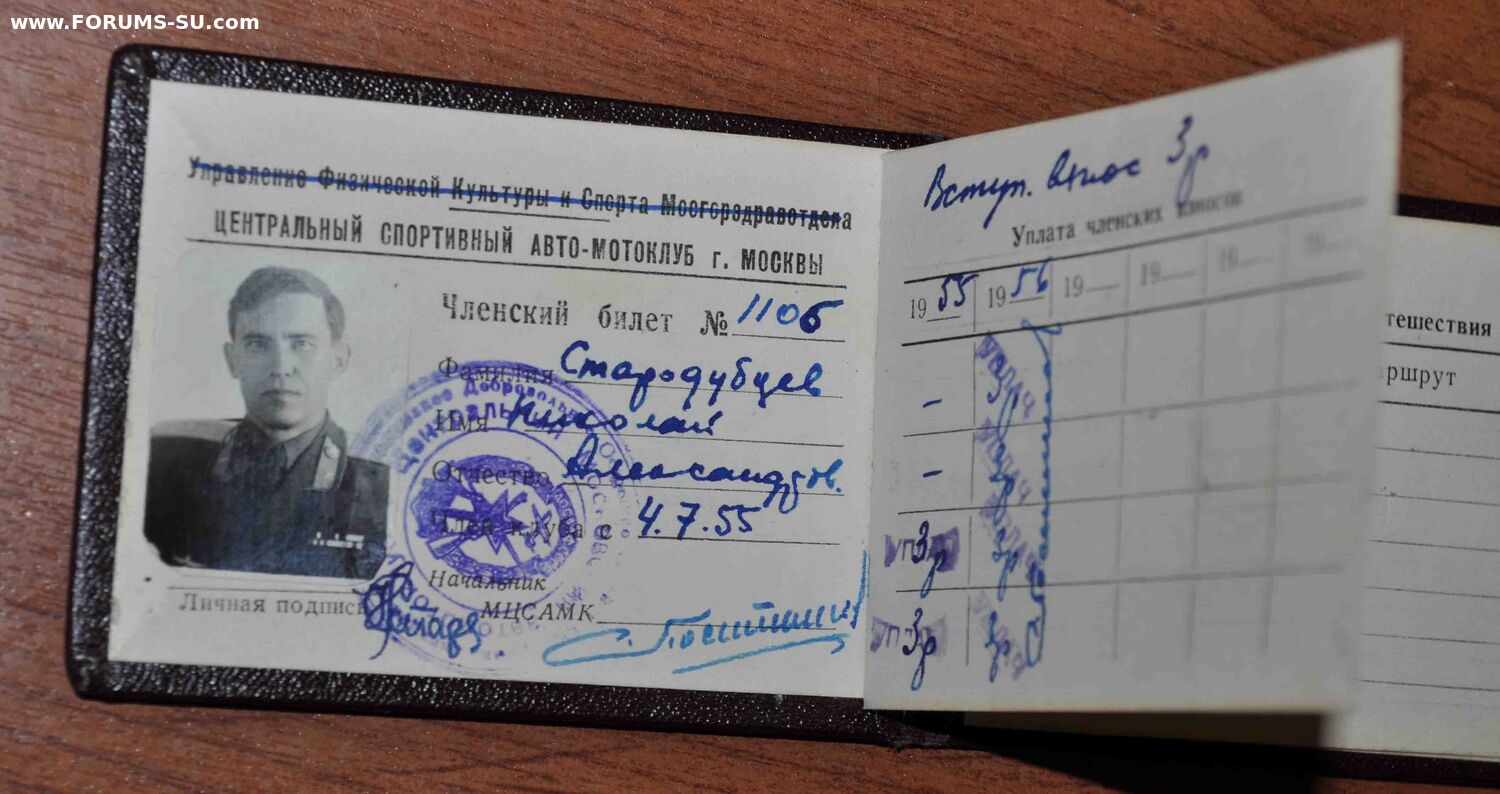 www.FORUMS-SU.com
Управление Физической Культуры и Спорта Мосгорздравотдела
ЦЕНТРАЛЬНЫЙ СПОРТИВНЫЙ АВТО-МОТОКЛУБ г. МОСКВЫ
Членский билет № 1106
Фамилия Стародубцев
Имя Николай
Отчество Александров.
Член клуба с 4.7.55
Начальник
МЦСАМК
Личная подпись
Вступ. взнос 3р
Уплата членских взносов
1955 1956 19 19 19 19
-
-
УП 3р 3р
УП 3р 3р
тешествия
ршрут